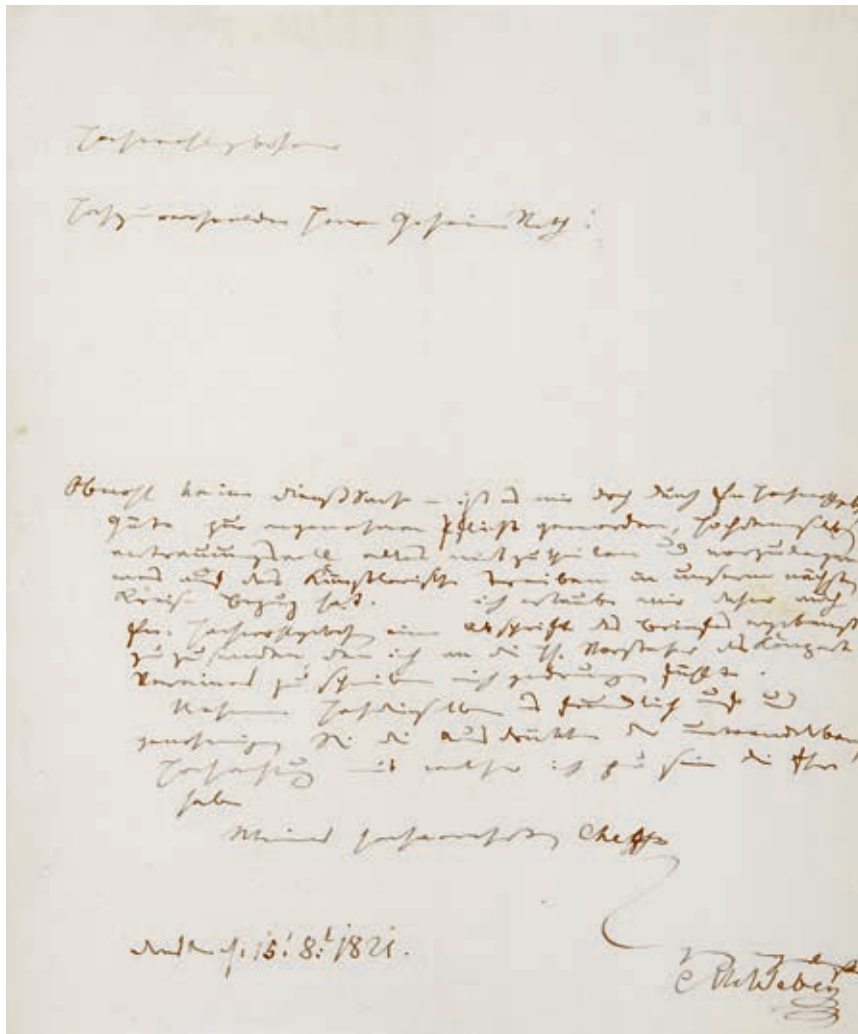 Hochwohlgebohrner
Hochzuverehrender Herr Geheimer Rath!
Obwohl keine Dienstsache – ist es mir doch durch Ew: Hochwohlgeb:
Güte zur angenehmen Pflicht geworden, Hochdenselben
vertrauungsvoll alles mitzutheilen und vorzulegen
was auf das Künstlerische Treiben in unserm nächsten
Kreise Bezug hat. ich erlaube mir daher auch
Ew. Hochwohlgeboh: eine Abschrift des Briefes ergebenst
zu zusenden den ich an die H. Vorsteher des Konzert
Vereines zu schreiben mich gedrungen fühlte.
Nehmen Hochdieselben es freundlich auf und
genehmigen Sie die Ausdrükke der unwandelbaren
Hochachtung mit welcher ich zu sein die Ehre
habe
Meines hochverehrten Cheffs
d: 15: 8: 1821.
CMvWeber